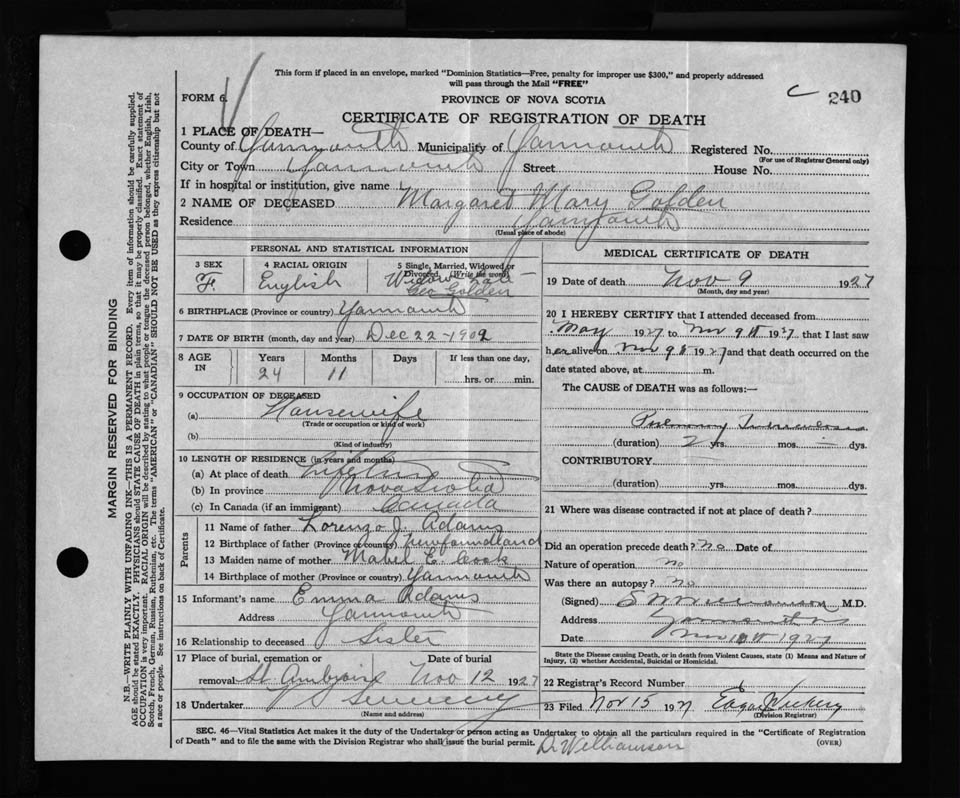 This form if placed in an envelope, marked "Dominion Statistics—Free, penalty for improper use $300," and properly addressed
will pass through the Mail "FREE"
FORM 6.
PROVINCE OF NOVA SCOTIA
C 240
CERTIFICATE OF REGISTRATION OF DEATH
1 PLACE OF DEATH—
County of Yarmouth Municipality of Yarmouth Registered No.
(For use of Registrar General only)
City or Town Yarmouth Street House No.
If in hospital or institution, give name
2 NAME OF DECEASED Margaret Mary Golden
Residence Yarmouth
(Usual place of abode)
PERSONAL AND STATISTICAL INFORMATION
3 SEX
F
4 RACIAL ORIGIN
English
5 Single, Married, Widowed or
Divorced, (Write the word)
Widow
Geo Golden
6 BIRTHPLACE (Province or country) Yarmouth
7 DATE OF BIRTH (month, day and year) Dec 22 - 1902
8 AGE IN
Years Months Days If less than one day,
24 11 hrs. or min.
9 OCCUPATION OF DECEASED
(a) Housewife
(Trade or occupation or kind of work)
(b)
(Kind of industry)
10 LENGTH OF RESIDENCE (in years and months)
(a) At place of death Lifetime
(b) In province Nova Scotia
(c) In Canada (if an immigrant) Canada
Parents
11 Name of father Lorenzo J. Adams
12 Birthplace of father (Province or country) Newfoundland
13 Maiden name of mother Mabel E. Cook
14 Birthplace of mother (Province or country) Yarmouth
15 Informant's name Emma Adams
Address Yarmouth
16 Relationship to deceased Sister
17 Place of burial, cremation or Date of burial
removal St. Ambroise Nov 12 1927
18 Undertaker Sweeney
(Name and address)
MEDICAL CERTIFICATE OF DEATH
19 Date of death Nov 9 1927
(Month, day and year)
20 I HEREBY CERTIFY that I attended deceased from
May 1927 to Nov 9th 1927 that I last saw
her alive on Nov 9th 1927 and that death occurred on the
date stated above, at m.
The CAUSE of DEATH was as follows:—
Pulmonary Tuberculosis
(duration) 2 yrs. mos. - dys.
CONTRIBUTORY
(duration) yrs. mos. dys.
21 Where was disease contracted if not at place of death?
Did an operation precede death? No Date of
Nature of operation no
Was there an autopsy? No
(Signed) S W Williamson M.D.
Address Yarmouth NS
Date Nov 10th 1927
State the Disease causing Death, or in death from Violent Causes, state (1) Means and Nature of
Injury, (2) whether Accidental, Suicidal or Homicidal.
22 Registrar's Record Number
23 Filed Nov 15 1927 Edgar Vickery
(Division Registrar)
SEC. 46—Vital Statistics Act makes it the duty of the Undertaker or person acting as Undertaker to obtain all the particulars required in the "Certificate of Registration
of Death" and to file the same with the Division Registrar who shall issue the burial permit. D. Williamson (OVER)
MARGIN RESERVED FOR BINDING
N.B.—WRITE PLAINLY WITH UNFADING INK—THIS IS A PERMANENT RECORD. Every item of information should be carefully supplied.
AGE should be stated EXACTLY. PHYSICIANS should STATE CAUSE OF DEATH in plain terms, so that it may be properly classified. Exact statement of
OCCUPATION is very important. RACIAL ORIGIN will be described by stating to what people or tongue the deceased person belonged, whether English, Irish,
Scotch, French, German, Russian, Ruthenian, etc. The terms "AMERICAN" or "CANADIAN" SHOULD NOT BE USED as they express citizenship but not
a race or people. See instructions on back of Certificate.